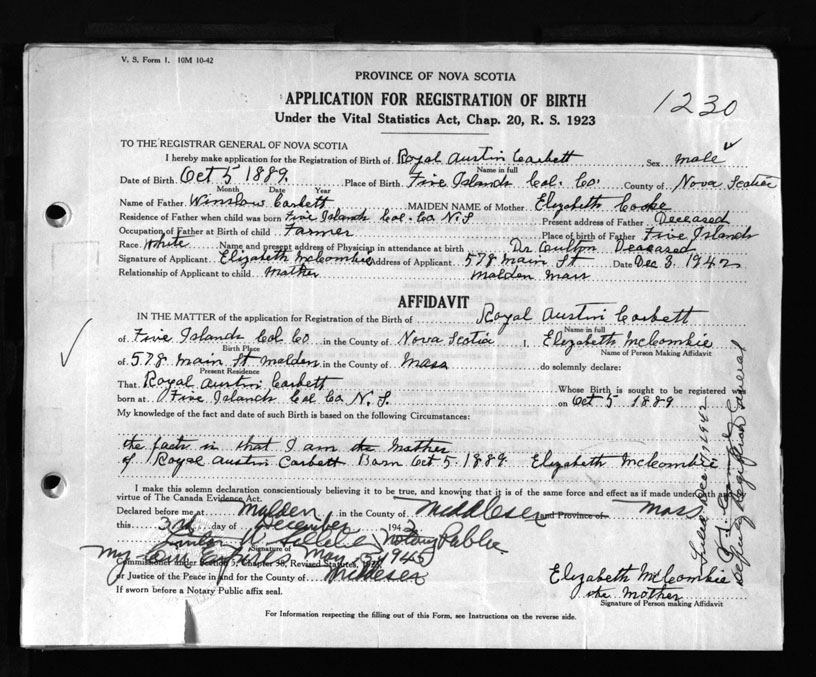 V. S. Form 1. 10M 10-42
PROVINCE OF NOVA SCOTIA
APPLICATION FOR REGISTRATION OF BIRTH
1230
Under the Vital Statistics Act, Chap. 20, R. S. 1923
TO THE REGISTRAR GENERAL OF NOVA SCOTIA
I hereby make application for the Registration of Birth of Royal Austin Corbett Sex male
Name in full
Date of Birth Oct 5 1889 Place of Birth Five Islands Col. Co. County of Nova Scotia
Month Date Year
Name of Father Winslow Corbett MAIDEN NAME of Mother Elizabeth Cooke
Residence of Father when child was born Five Islands Col. Co N.S Present address of Father Deceased
Occupation of Father at Birth of child Farmer Place of birth of Father Five Islands
Race White Name and present address of Physician in attendance at birth Dr Deceased
Signature of Applicant Elizabeth McCombie Address of Applicant 578 Main St Date Dec 3. 1942
Relationship of Applicant to child Mother Malden Mass
AFFIDAVIT
IN THE MATTER of the application for Registration of the Birth of Royal Austin Corbett
Name in full
of Five Islands Col Co in the County of Nova Scotia I, Elizabeth McCombie
Birth Place Name of Person Making Affidavit
of 578 Main St Malden in the County of Mass do solemnly declare:
Present Residence
That Royal Austin Corbett Whose Birth is sought to be registered was
born at Five Islands Col. Co. N. S. on Oct 5 1889
My knowledge of the fact and date of such Birth is based on the following Circumstances:
the facts is that I am the Mother
of Royal Austin Corbett Born Oct 5. 1889. Elizabeth McCombie
I make this solemn declaration conscientiously believing it to be true, and knowing that it is of the same force and effect as if made under Oath and
virtue of The Canada Evidence Act.
Declared before me at Malden in the County of Middlesex and Province of Mass
this 3rd day of December 1942
Notary Public
Signature of
My Com Expires May 5 1945
Commissioner under Section 5, Chapter 38, Revised Statutes, 1923
or Justice of the Peace in and for the County of Middlesex
If sworn before a Notary Public affix seal.
Elizabeth McCombie
the Mother
Signature of Person making Affidavit
For Information respecting the filling out of this Form, see Instructions on the reverse side.
Filed Dec 1942
Deputy Registrar General